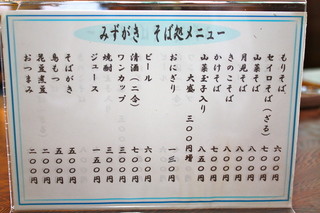 みずがき そば処メニュー
もりそば 六〇〇円
セイロそば(ざる) 七〇〇円
山菜そば 八〇〇円
月見そば 七〇〇円
きのこそば 八〇〇円
かけそば
山菜玉子入り 八五〇円
大盛 三〇〇円増
おにぎり 一三〇円
ビール 六〇〇円
清酒(二合) 七〇〇円
ワンカップ 三〇〇円
焼酎 三〇〇円
ジュース 一五〇円
そばがき 五〇〇円
鳥もつ 五〇〇円
花豆煮豆 二〇〇円
おつまみ 二〇〇円